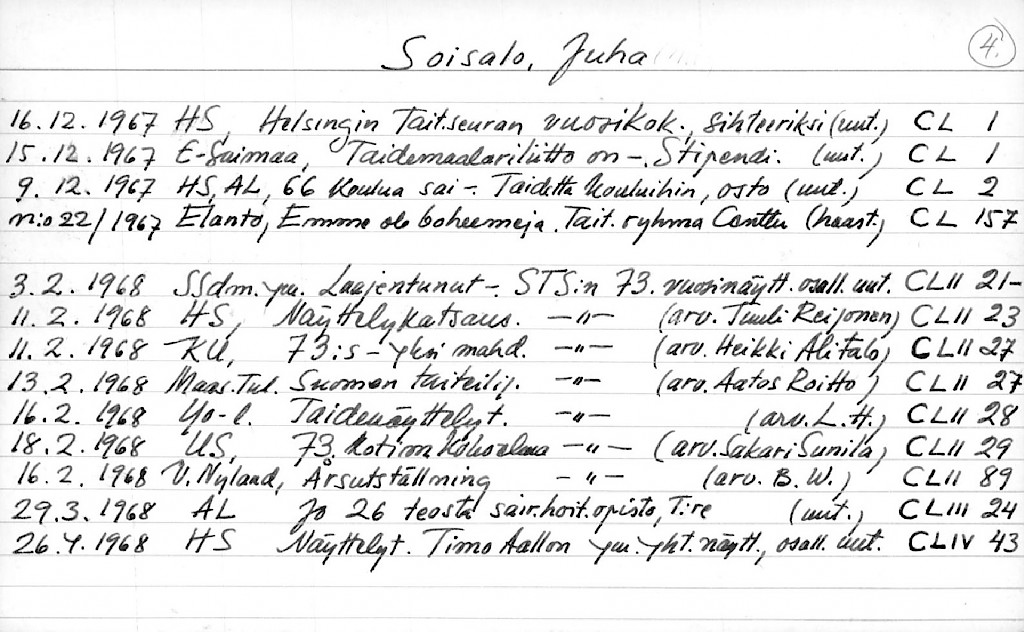 4.
Soisalo, Juha
16.12.1967 HS, Helsingin Tait.seuran vuosikok., sihteeriksi (uut.) CL 1
15.12.1967 E-Saimaa, Taidemaalariliitto on -. Stipendi. (uut.) CL 1
9.12.1967 HS, AL, 66 koulua sai -. Taidetta kouluihin, osto (uut.) CL 2
n:o 22/1967 Elanto, Emme ole boheemeja. Tait. ryhmä Conttu (haast.) CL 157
3.2.1968 SSdm. ym. Laajentunut -. STS:n 73. vuosinäytt. osall. uut. CLII 21-
11.2.1968 HS, Näyttelykatsaus. -"- (arv. Tuuli Reijonen) CLII 23
11.2.1968 KU, 73:s - yksi mahd. -"- (arv. Heikki Alitalo) CLII 27
13.2.1968 Maas.Tul. Suomen taiteilij. -"- (arv. Aatos Roitto) CLII 27
16.2.1968 Yo-l. Taidenäyttelyt. -"- (arv. L.H.) CLII 28
18.2.1968 US, 73. kotim. kokoelma -"- (arv. Sakari Sunila) CLII 29
16.2.1968 V. Nyland, Årsutställning -"- (arv. B.W.) CLII 89
29.3.1968 AL Jo 26 teosta sair.hoit.opisto, T:re (uut.) CLIII 24
26.4.1968 HS Näyttelyt. Timo Aallon ym. yht. näytt., osall. uut. CLIV 43